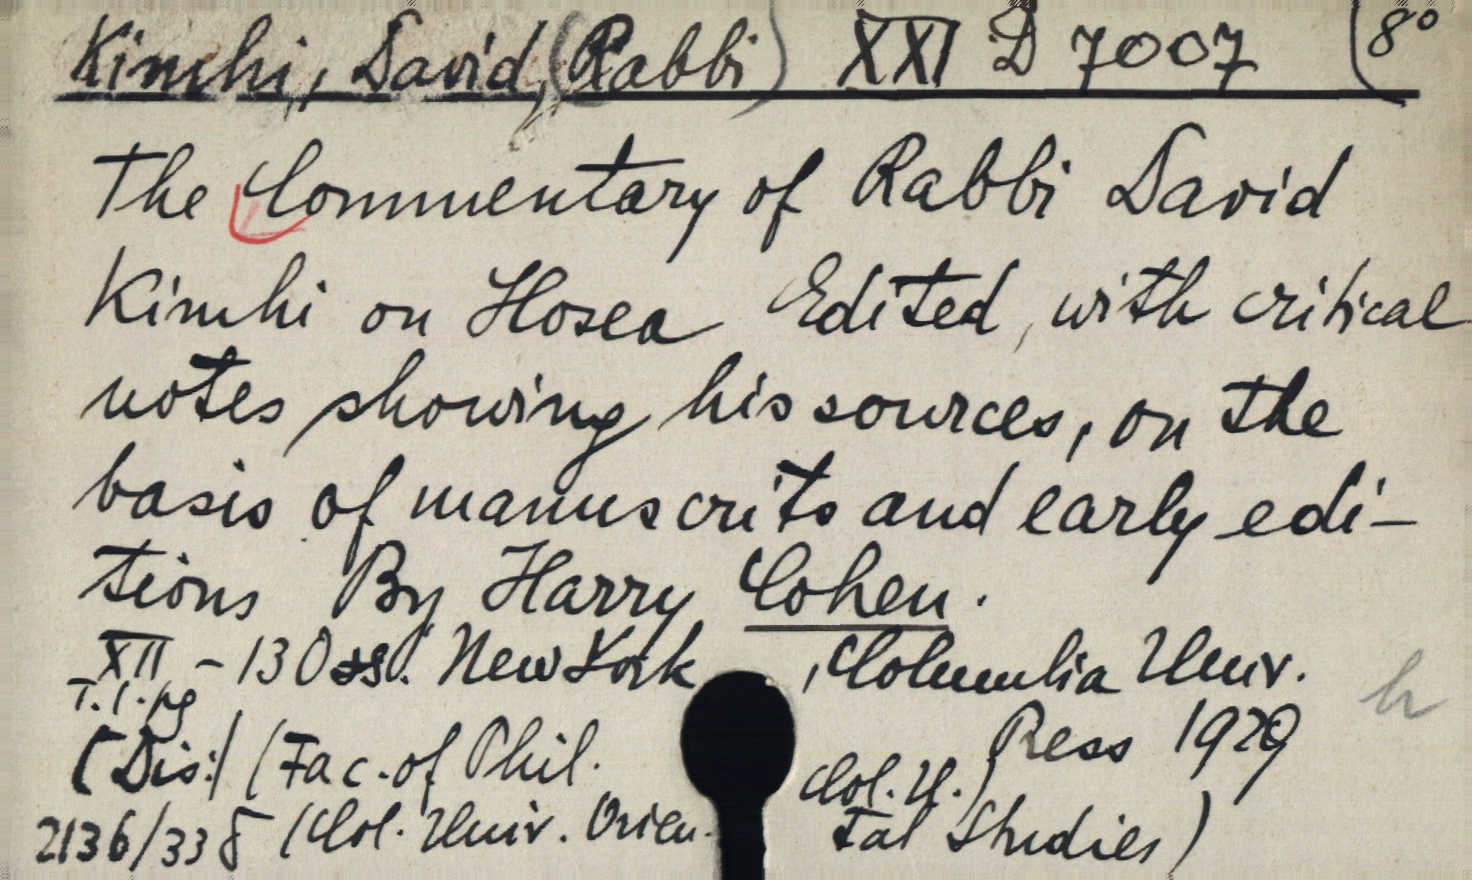 Kimhi, David, (Rabbi) XXI D 7007 (8°
The Commentary of Rabbi David
Kimhi on Hosea Edited, with critical
notes showing his sources, on the
basis of manuscrits and early edi-
tions By Harry Cohen.
XII - 130 ss. New York, Columbia Univ.
T.1.pg Press 1929
(Dis.) (Fac. of Phil. Col. U.)
2136/338 (Col. Univ. Orien- tal Studies)
h